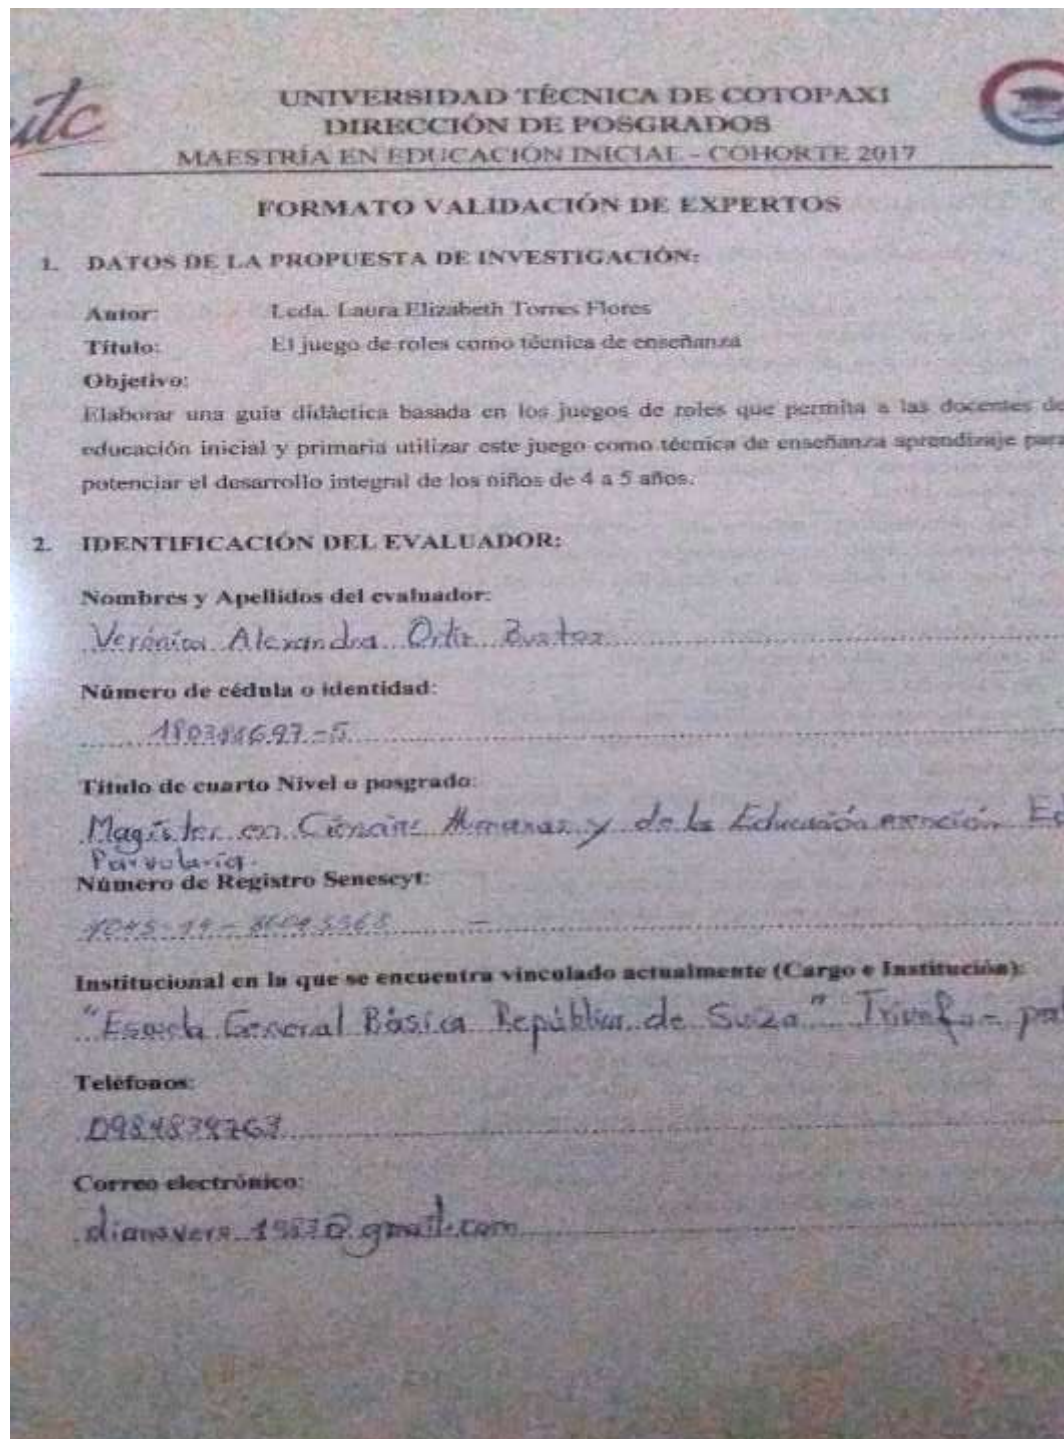 utc
UNIVERSIDAD TÉCNICA DE COTOPAXI
DIRECCIÓN DE POSGRADOS
MAESTRÍA EN EDUCACIÓN INICIAL - COHORTE 2017
FORMATO VALIDACIÓN DE EXPERTOS
1. DATOS DE LA PROPUESTA DE INVESTIGACIÓN:
Autor: Lcda. Laura Elizabeth Torres Flores
Título: El juego de roles como técnica de enseñanza
Objetivo:
Elaborar una guía didáctica basada en los juegos de roles que permita a las docentes de
educación inicial y primaria utilizar este juego como técnica de enseñanza aprendizaje para
potenciar el desarrollo integral de los niños de 4 a 5 años.
2. IDENTIFICACIÓN DEL EVALUADOR:
Nombres y Apellidos del evaluador:
Verónica Alexandra Ortiz
Número de cédula o identidad:
Título de cuarto Nivel o posgrado:
Magíster en Ciencias Humanas y de la Educación mención
Parvularia.
Número de Registro Senescyt:
Institucional en la que se encuentra vinculado actualmente (Cargo e Institución):
"Escuela General Básica República de Suiza"
Teléfonos:
Correo electrónico: